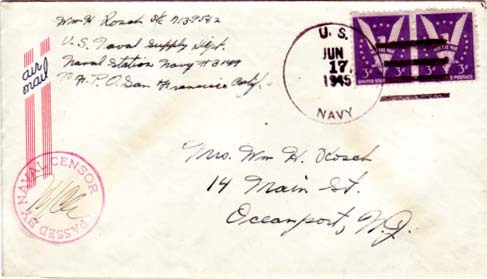 Wm H. Rosch SK 7139582
U.S. Naval Supply Dept.
Naval Station Navy #3149
℅ F.P.O. San Francisco Calif.
air
mail
U. S.
JUN
17
1945
NAVY
WIN THE WAR
3¢ 3¢
UNITED STATES U.S. POSTAGE
PASSED BY NAVAL CENSOR
Mrs. Wm H. Rosch
14 Main St.
Oceanport, N.J.